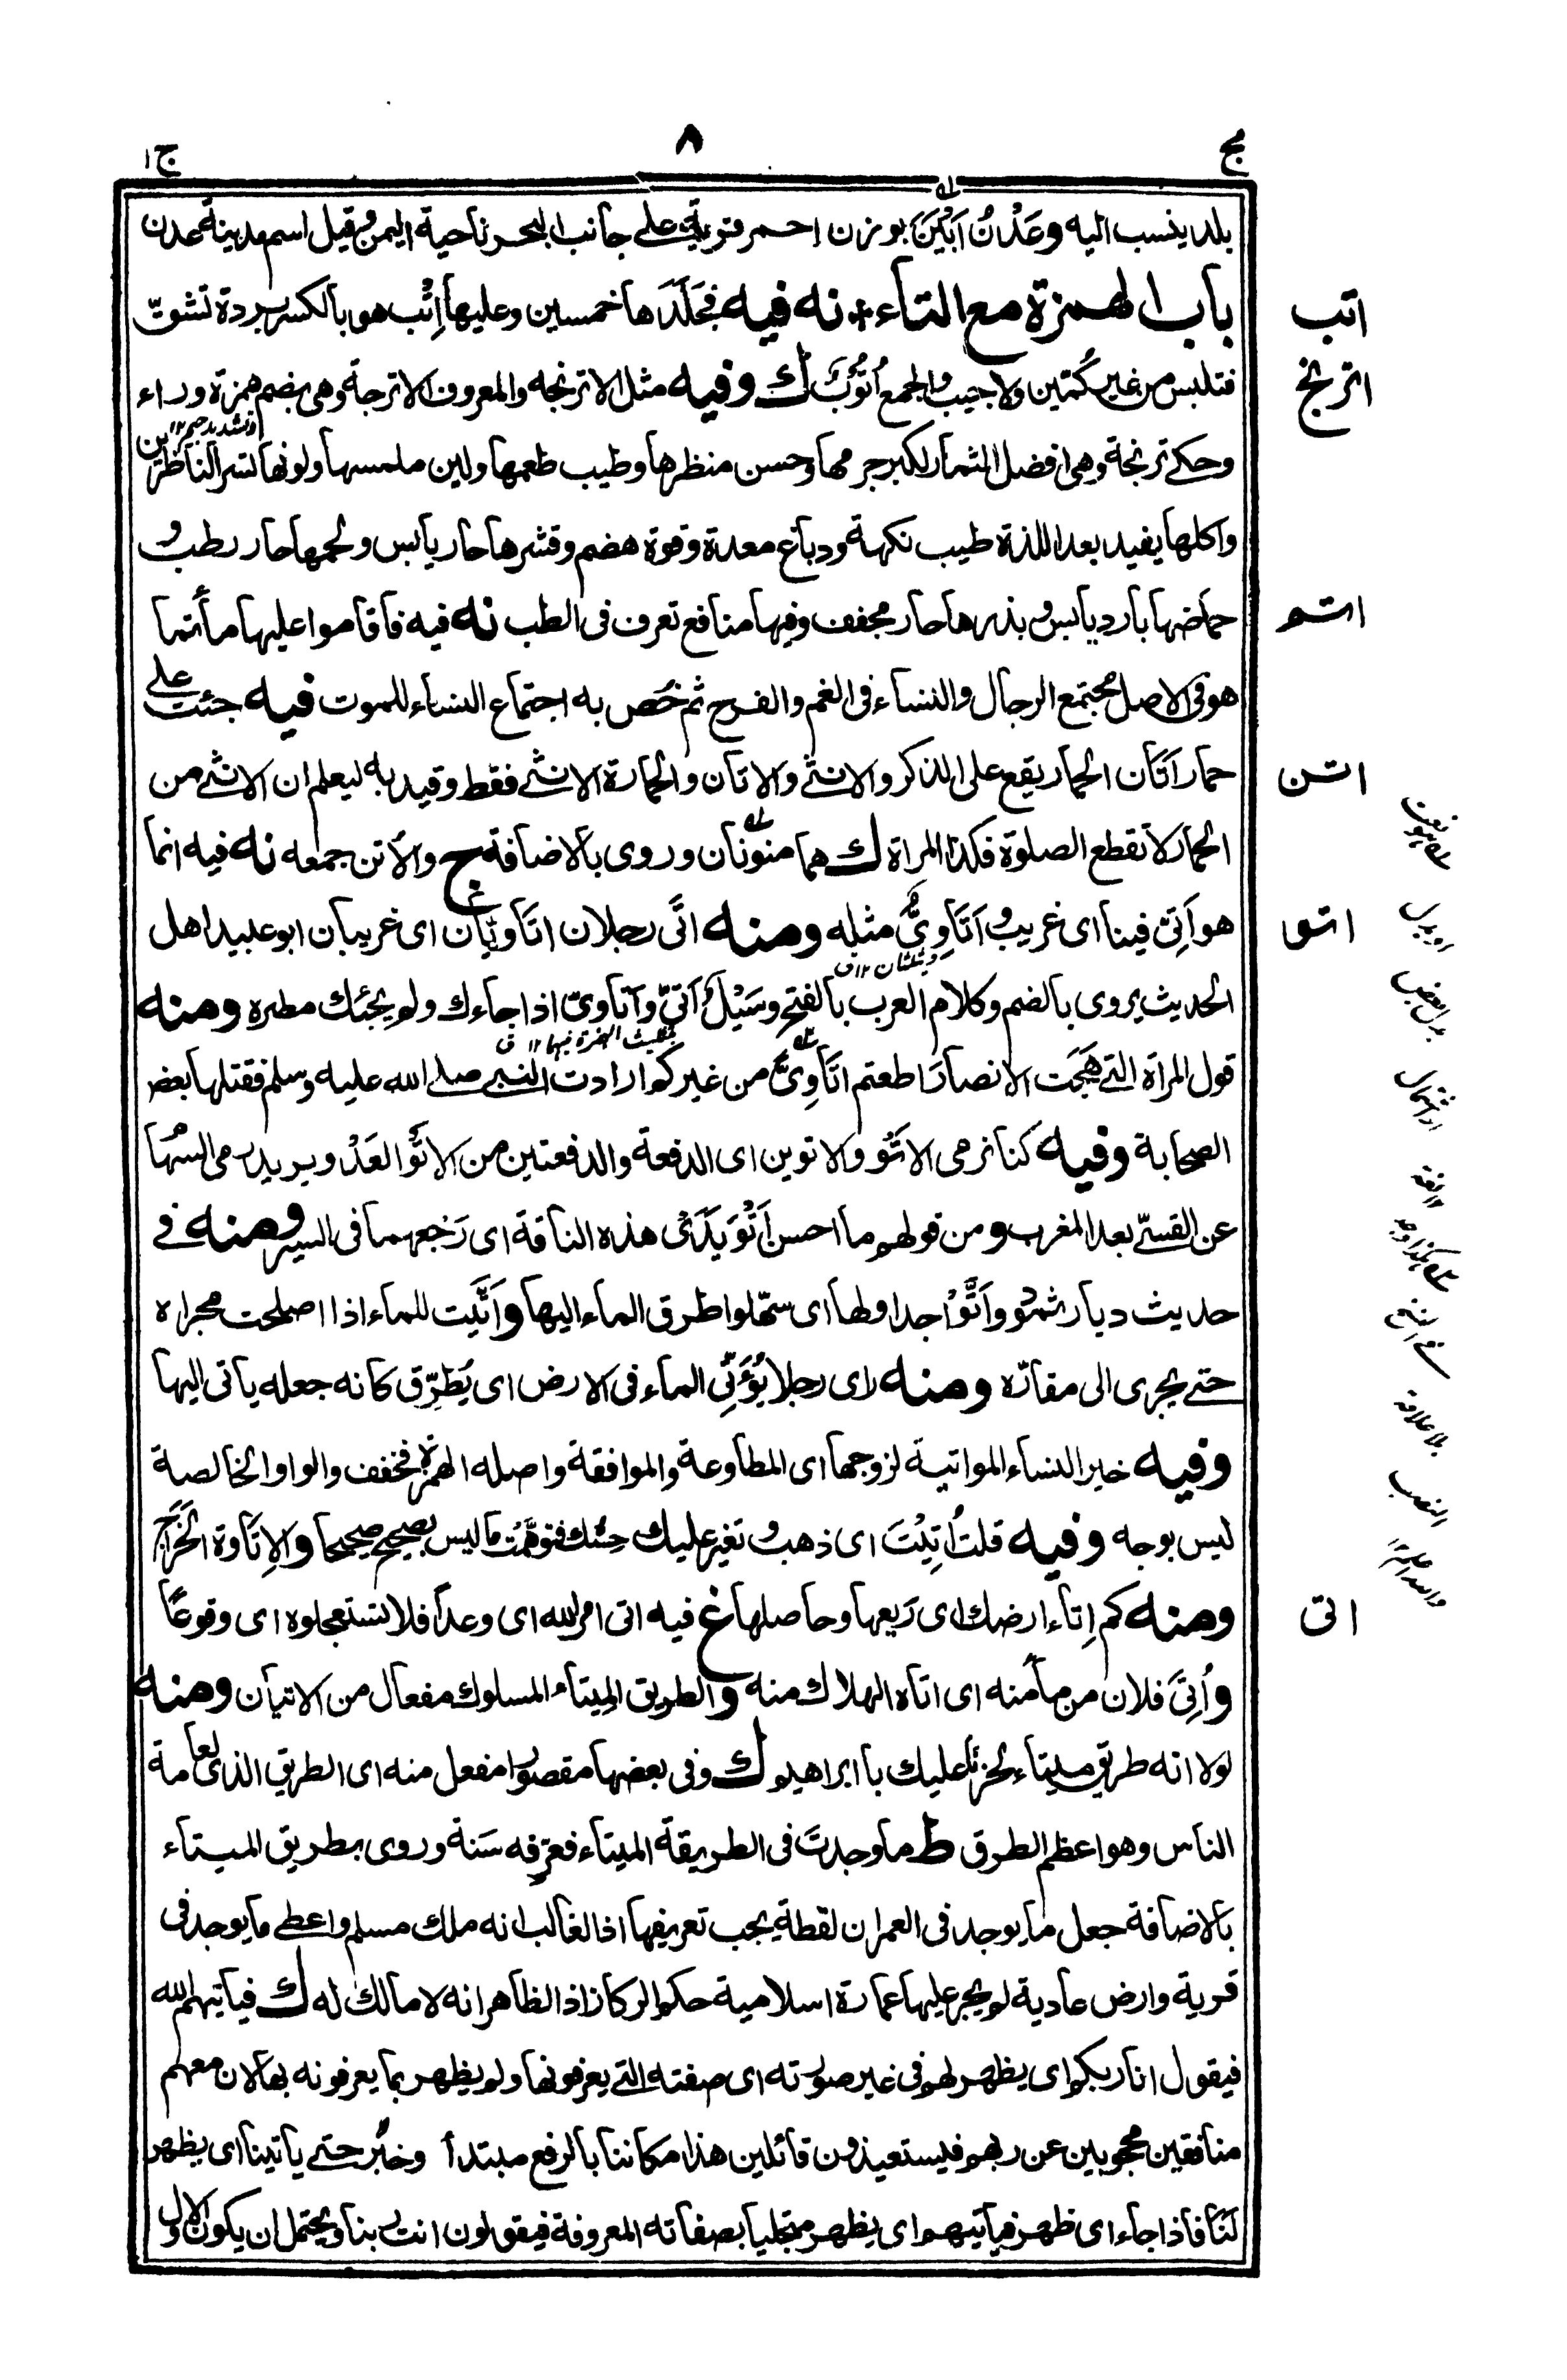 مج ٨ ج١
بلد ينسب اليه وعَدْنُ اَبْيَنَ بوزن احمر قرية على جانب البحر ناحية اليمن وقيل اسم مدينة عدن
باب الهمزة مع التاء نه فيه فجَلَدَها خمسين وعليها اِتْب هو بالكسر بردة تشقّ
فتلبس من غير كُمّين ولا جيب والجمع اُتُوْبٌ ك وفيه مثل الاترنجه والمعروف الاترجة وهى بضم همزة وراء
وتشديد جيم ١٢
وحكى ترنجة وهى افضل الثمار لكبر جرمها وحسن منظرها وطيب طعمها ولين ملمسها ولونها تسر الناظرين
واكلها يفيد بعد اللذة طيب نكهة ودباغ معدة وقوة هضم وقشرها حار يابس ولحمها حار رطب و
حماضها بارد يابس وبذرها حار مجفف وفيها منافع تعرف فى الطب نه فيه فاقاموا عليها مأتما
هو فى الاصل مجتمع الرجال والنساء فى الغم والفرح ثم خُص به اجتماع النساء للموت فيه جئت على
حمار اَتَان الحمار يقع على الذكر والانثى والاتان والحمارة الانثى فقط وقيد به ليعلم ان الانثى من
الحمار لا تقطع الصلوة فكذا المراة ك هما منونان وروى بالاضافة ج والأتن جمعه نه فيه انما
هو اَتِىّ فينا اى غريب و اَتَاوِىٌّ مثله ومنه انَّى رجلان اتَاوِيّان اى غريبان ابو عبيد اهل
ويثلثان ١٢ ق
الحديث يروى بالضم وكلام العرب بالفتح وسَيْلٌ اَتىّ واَتاوىّ اذا جاءك ولم يجئك مطره ومنه
بتثليث الهمزة فيها ١٢ ق
قول المراة التى هَجَت الانصارَ اطعتم اتَاوِىّ من غيركم ارادت النبى صلى الله عليه وسلم فقتلها بعض
الصحابة وفيه كنا نرمى الاتَوْ والاتوين اى الدفعة والدفعتين من الاتْو العَدْو يريد رمى السهام
عن القسىّ بعد المغرب ومن قولهم ما احسن اَتْوَ يَدَىْ هذه الناقة اى رَجعهما فى السير ومنه فى
حديث ديار ثمود واَتَّوْا جداولها اى سهّلوا طرق الماء اليها واَتَّيت للماء اذا اصلحت مجراه
حتى يجرى الى مقارّه ومنه راى رجلا يُؤَتِّى الماء فى الارض اى يَطرِّق كانه جعله ياتى اليها
وفيه خير النساء المواتية لزوجها اى المطاوعة والموافقة واصله الهمزة فخفف والواو الخالصة
ليس بوجه وفيه قلتُ اُتِيْتَ اى ذهب و تغير عليك حسّك فتوهّمت ما ليس بصحيح صحيحا والاِتَاوة الخَرَاج
ومنه كم اِتاء ارضك اى رَيعها وحاصلها غ فيه اتى امر الله اى وعداً فلا تستعجلوه اى وقوعًا
واُتِىَ فلان من مأمنه اى اتاه الهلاك منه والطريق المِيتاء المسلوك مفعال من الاتيان ومنه
لولا انه طريق ميتاء لحزنّا عليك يا ابراهيم ك وفى بعضها مقصورا مفعل منه اى الطريق الذى لعامة
الناس وهو اعظم الطرق ط ما وجدتَ فى الطريقة الميتاء فعرّفه سَنة وروى بطريق الميتاء
بالاضافة جعل ما يوجد فى العمران لقطة يجب تعريفها اذ الغالب انه ملك مسلم واعطى ما يوجد فى
قرية وارض عادية لم يجر عليها عمارة اسلامية حكم الركاز اذ الظاهر انه لا مالك له ك فياتيهم الله
فيقول انا ربكم اى يظهر لهم فى غير صورته اى صفته التى يعرفونها ولم يظهر بما يعرفونه بها لان معهم
منافقين محجوبين عن ربهم فيستعيذون قائلين هذا مكاننا بالرفع مبتدأ وخبر حتى ياتينا اى يظهر
لنا فاذا جاء اى ظهر فيأتيهم اى يظهر متجليا بصفاته المعروفة فيقولون انت ربنا ويحتمل ان يكون الاول
اتب
اترنج
اتم
اتن
اتو
اتى